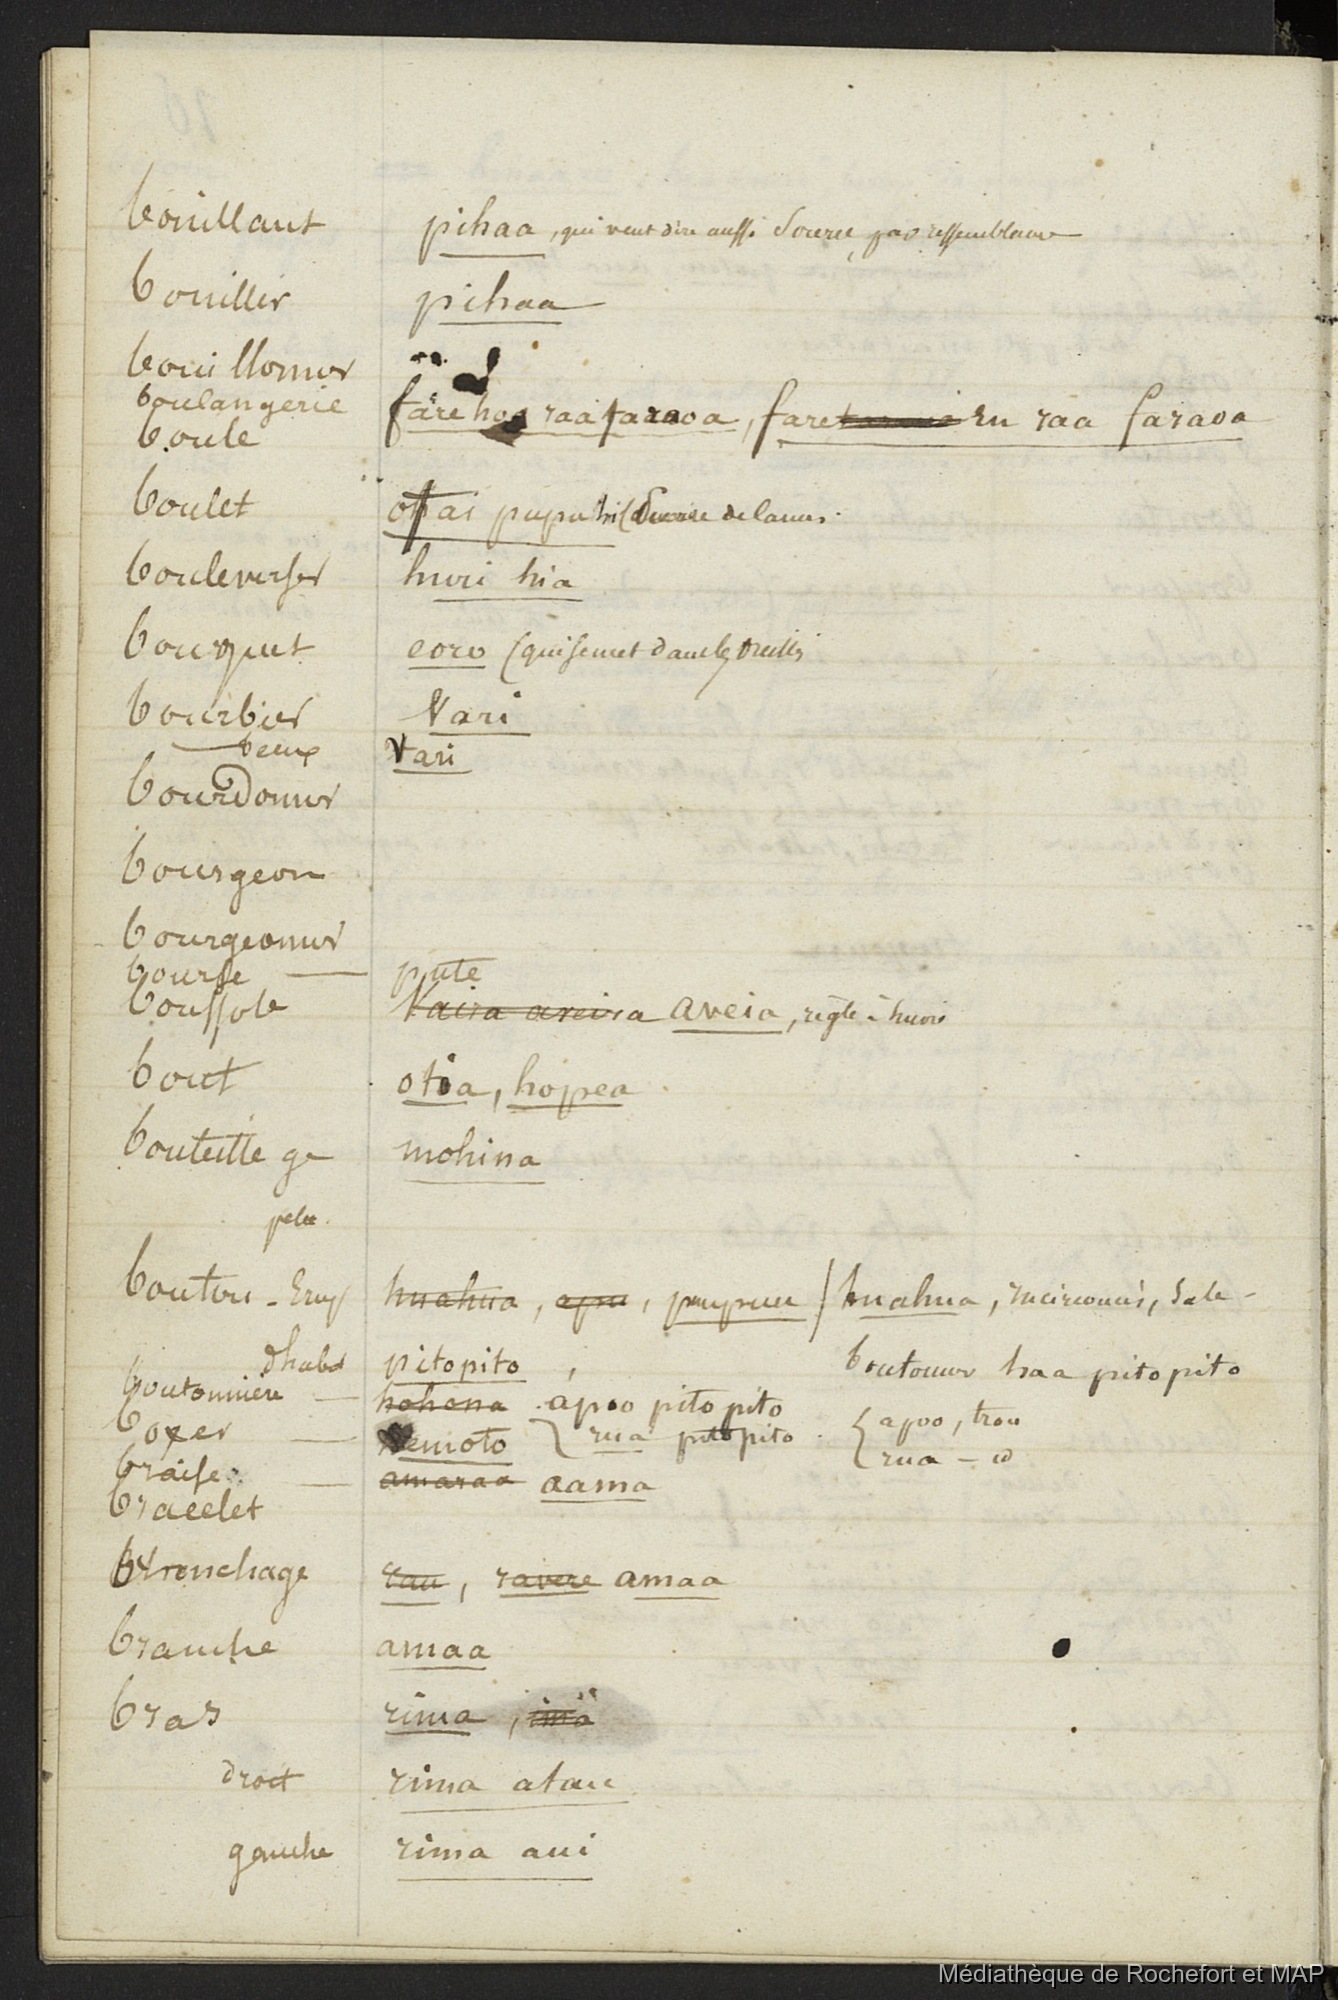 bouillant pihaa, qui veut dire aussi Source, par ressemblance
bouillir pihaa
bouillonner
boulangerie fare hoo raa faraoa, fare eu raa faraoa
boule
boulet ofai pupuhi
bouleverser huri hia
bouquet eoro (qui se met dans les oreilles
bourbier Vari
beux Vari
bourdonner
bourgeon
bourgeonner
bourse — pute
boussole Vaira aveira aveia, règle à huri
bout otia, hopea
bouteille ge mohina
pete
bouton - Erup huahua, apu, puupuu / huahua, sale -
d'habt pitopito, boutonner haa pitopito
boutonnière — hohona apoo pitopito { apoo, trou
boxer — emoto } rua pitopito { rua - id
braise — amaraa aama
bracelet
branchage rau, ravere amaa
branche amaa
bras rima, ima
droit rima atau
gauche rima aui
Médiathèque de Rochefort et MAP